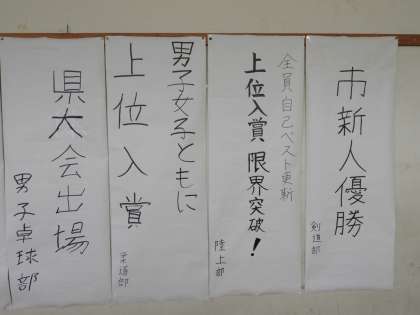 市新人優勝
剣道部
全員自己ベスト更新
上位入賞 限界突破!
陸上部
男子女子ともに
上位入賞
柔道部
県大会出場
男子卓球部